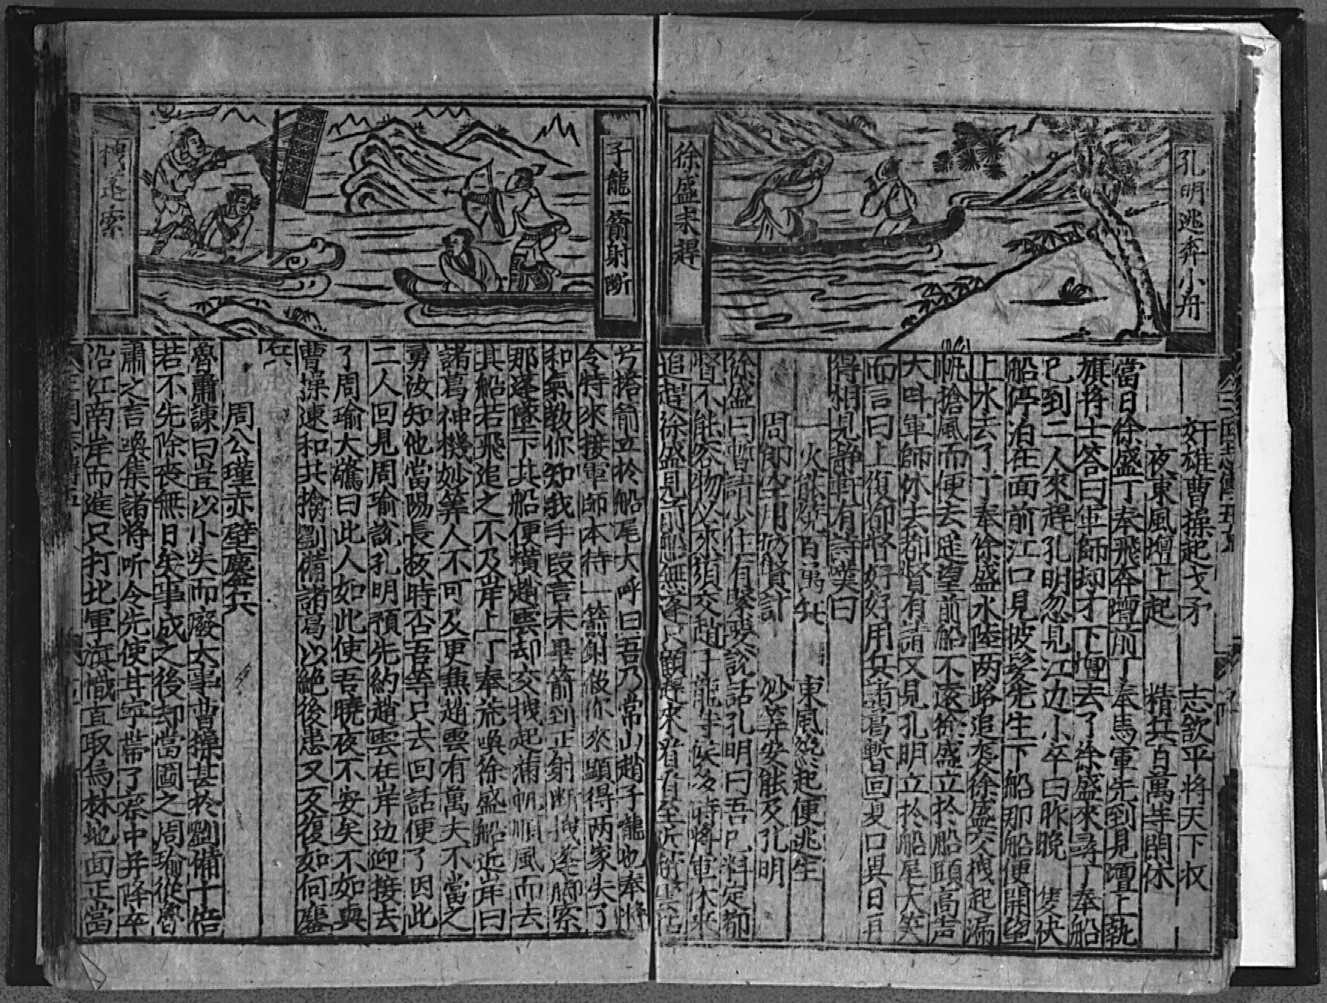 孔明逃奔小舟
徐盛未趕
奸雄曹操起戈矛 志欲平將天下收
一夜東風壇上起 精兵百萬半閒休
當日徐盛丁奉飛奔壇前丁奉馬軍先到見壇上執
旗將士答曰軍師却才下壇去了徐盛來尋丁奉船
已到二人來趕孔明忽見江边小卒曰昨晚一隻快
船停泊在面前江口見披髮先生下船那船便開望
上水去了丁奉徐盛水陸两路追袭徐盛交拽起滿
帆搶風而便去遥望前船不遠徐盛立於船頭高声
大呌軍師休去都督有請又見孔明立於船尾大笑
而言曰上復都督好好用兵諸葛暫回夏口異日再
得相見静軒有詩嘆曰
一火能燒百萬兵 東風縂起便逃生
周郎 用 計 妙筭安能及孔明
徐盛曰暫請少住有緊要說話孔明曰吾已料定都
督不能容物必來 交趙子龍等候多時將軍休來
追趕徐盛見前船無篷只顧趕來看看至近趙雲
子龍一箭射斷
篷索
弓搭箭立於船尾大呼曰吾乃常山趙子龍也奉將
令特來接軍師本待一箭射殺你來顯得两家失了
和氣教你知我手段言未畢箭到正射断拽篷脚索
那篷墜下其船便橫趙雲却交拽起滿帆順風而去
其船若飛追之不及岸上丁奉荒喚徐盛船近岸曰
諸葛神機妙筭人不可及更焦趙雲有萬夫不當之
勇汝知他當陽長坂時否吾等只去回話便了因此
二人回見周瑜說孔明預先約趙雲在岸边迎接去
了周瑜大驚曰此人如此使吾曉夜不安矣不如與
曹操連和共擒劉備諸葛以絶後患又 復如何鏖
兵
周公瑾赤壁鏖兵
魯肅諫曰豈以小失而廢大事曹操甚於劉備十倍
若不先除喪無日矣事成之後却當圖之周瑜從魯
肅之言喚集諸將听令先使甘寧帶了蔡中并降卒
沿江南岸而進只打北軍旗幟直取烏林地面正當